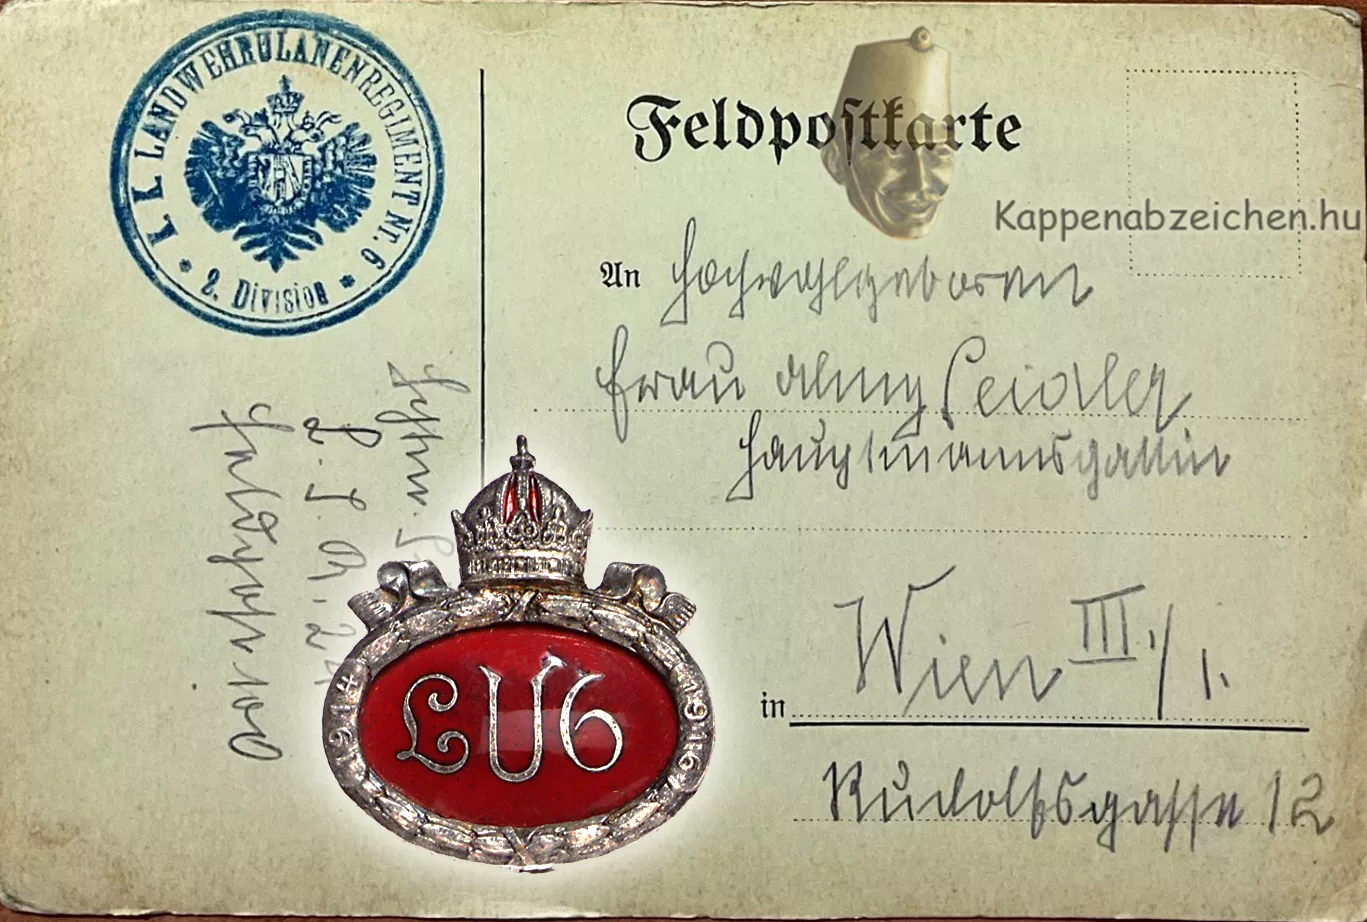 K. K. LANDWEHRULANENREGIMENT Nr. 6
* 2. Division *
Feldpostkarte
Kappenabzeichen.hu
An Hochwohlgeboren
Frau Almy Seidler
Hauptmannsgattin
in Wien III./1.
Rudolfsgasse 12
Feldpost 100
1914 1916
LU6